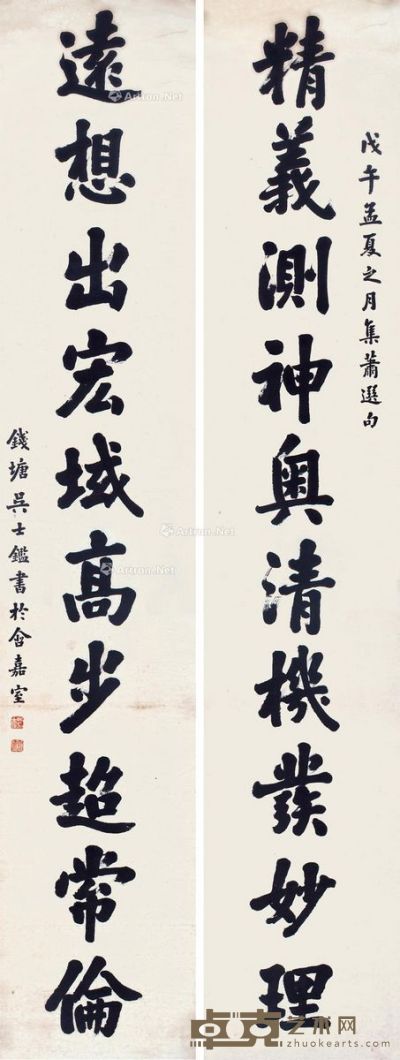 精義測神奧清機發妙理
戊午孟夏之月集蕭選句
遠想出宏域高步超常倫
錢塘吳士鑑書於含嘉室
Artron.Net
Artron.Net
Artron.Net
Artron.Net
卓克艺术网
zhuokearts.com